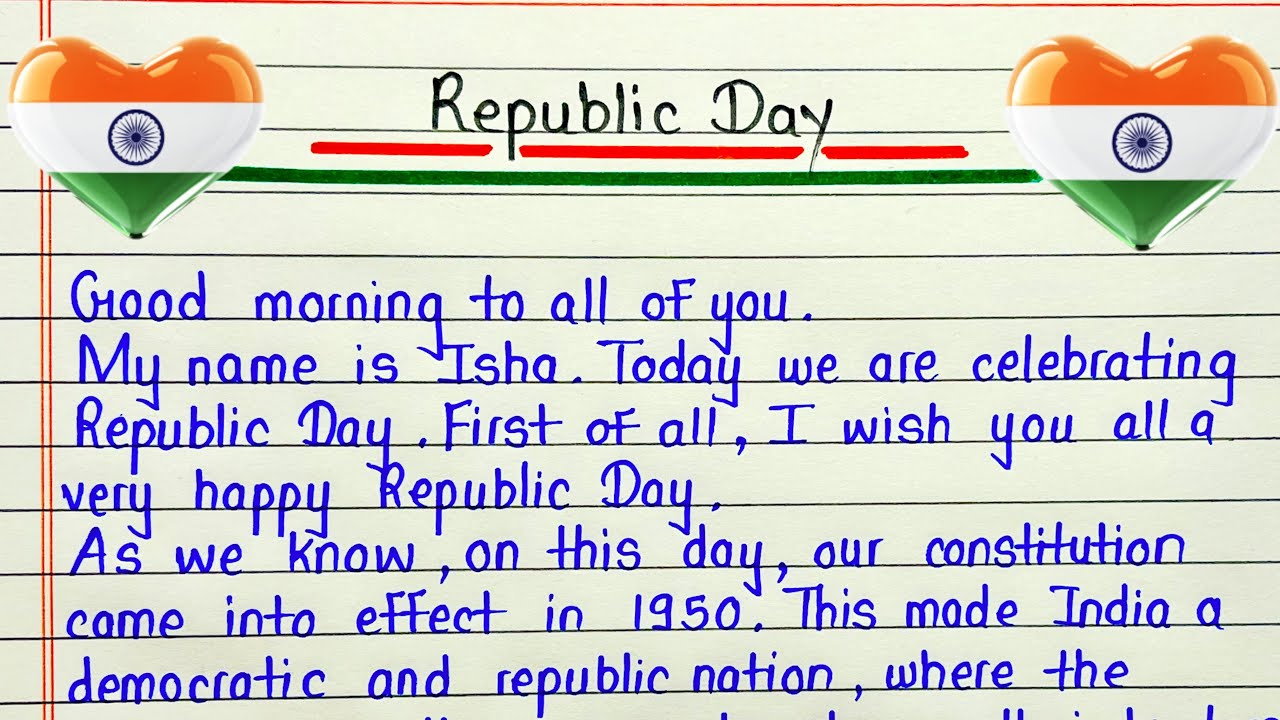 Republic Day
Good morning to all of you.
My name is Isha. Today we are celebrating
Republic Day. First of all, I wish you all a
very happy Republic Day.
As we know, on this day, our constitution
came into effect in 1950. This made India a
democratic and republic nation, where the